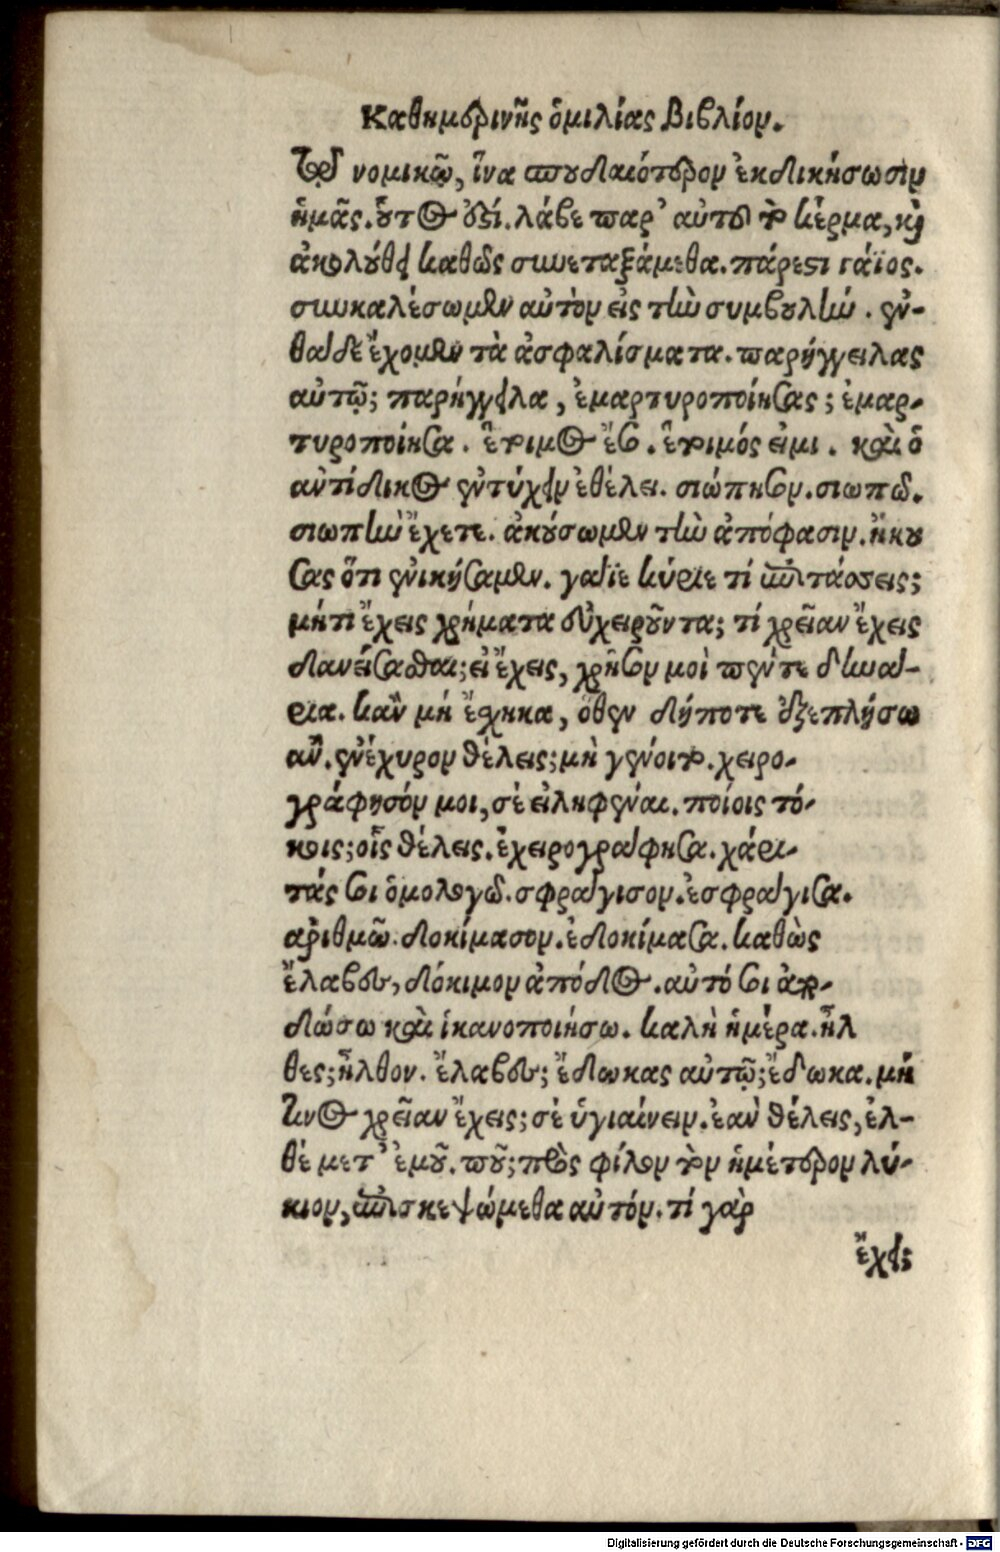 Καθημερινῆς ὁμιλίας βιβλίον.
τῷ νομικῷ, ἵνα σπουδαιότερον ἐκδικήσωσιν
ἡμᾶς. οὗτος ἐξί. λάβε παρ' αὐτοῦ τὸ κέρμα, καὶ
ἀκολούθει καθὼς συνεταξάμεθα. πάρεστι γάϊος.
συγκαλέσωμεν αὐτὸν εἰς τὴν συμβουλήν. ἐν-
θάδε ἔχομεν τὰ ἀσφαλίσματα. παρήγγειλας
αὐτῷ; παρήγγειλα, ἐμαρτυροποίησας; ἐμαρ-
τυροποίησα. ἕτοιμος ἔσο. ἕτοιμός εἰμι. καὶ ὁ
ἀντίδικος ἐντύχειν ἐθέλει. σιώπησον. σιωπῶ.
σιωπὴν ἔχετε. ἀκούσωμεν τὴν ἀπόφασιν. ἤκου
σας ὅτι ἐνικήσαμεν. γάϊε κύριε τί ἐπιτάσσεις;
μήτι ἔχεις χρήματα εὐχειροῦντα; τί χρεῖαν ἔχεις
δανείσασθαι; εἰ ἔχεις, χρῆσόν μοὶ πέντε δηνά-
ρια. κἂν μή ἔσχηκα, ὅθεν δήποτε ἐξεπλήσω
ἄν. ἐνέχυρον θέλεις; μὴ γένοιτο. χειρο-
γράφησόν μοι, σὲ εἰληφέναι. ποίοις τό-
κοις; οἷς θέλεις. ἐχειρογράφησα. χάρι-
τάς σοι ὁμολογῶ. σφράγισον. ἐσφράγισα.
ἀριθμῷ. δοκίμασον. ἐδοκίμασα. καθὼς
ἔλαβες, δόκιμον ἀπόδος. αὐτό σοι ἀπο-
δώσω καὶ ἱκανοποιήσω. καλὴ ἡμέρα. ἦλ
θες; ἦλθον. ἔλαβες; ἔδωκας αὐτῷ; ἔδωκα. μή
τινος χρεῖαν ἔχεις; σὲ ὑγιαίνειν. ἐὰν θέλεις, ἐλ-
θέ μετ' ἐμοῦ. ποῦ; πρὸς φίλον τὸν ἡμέτερον λύ-
κιον, ἐπισκεψώμεθα αὐτόν. τί γὰρ
ἔχει;
Digitalisierung gefördert durch die Deutsche Forschungsgemeinschaft - DFG